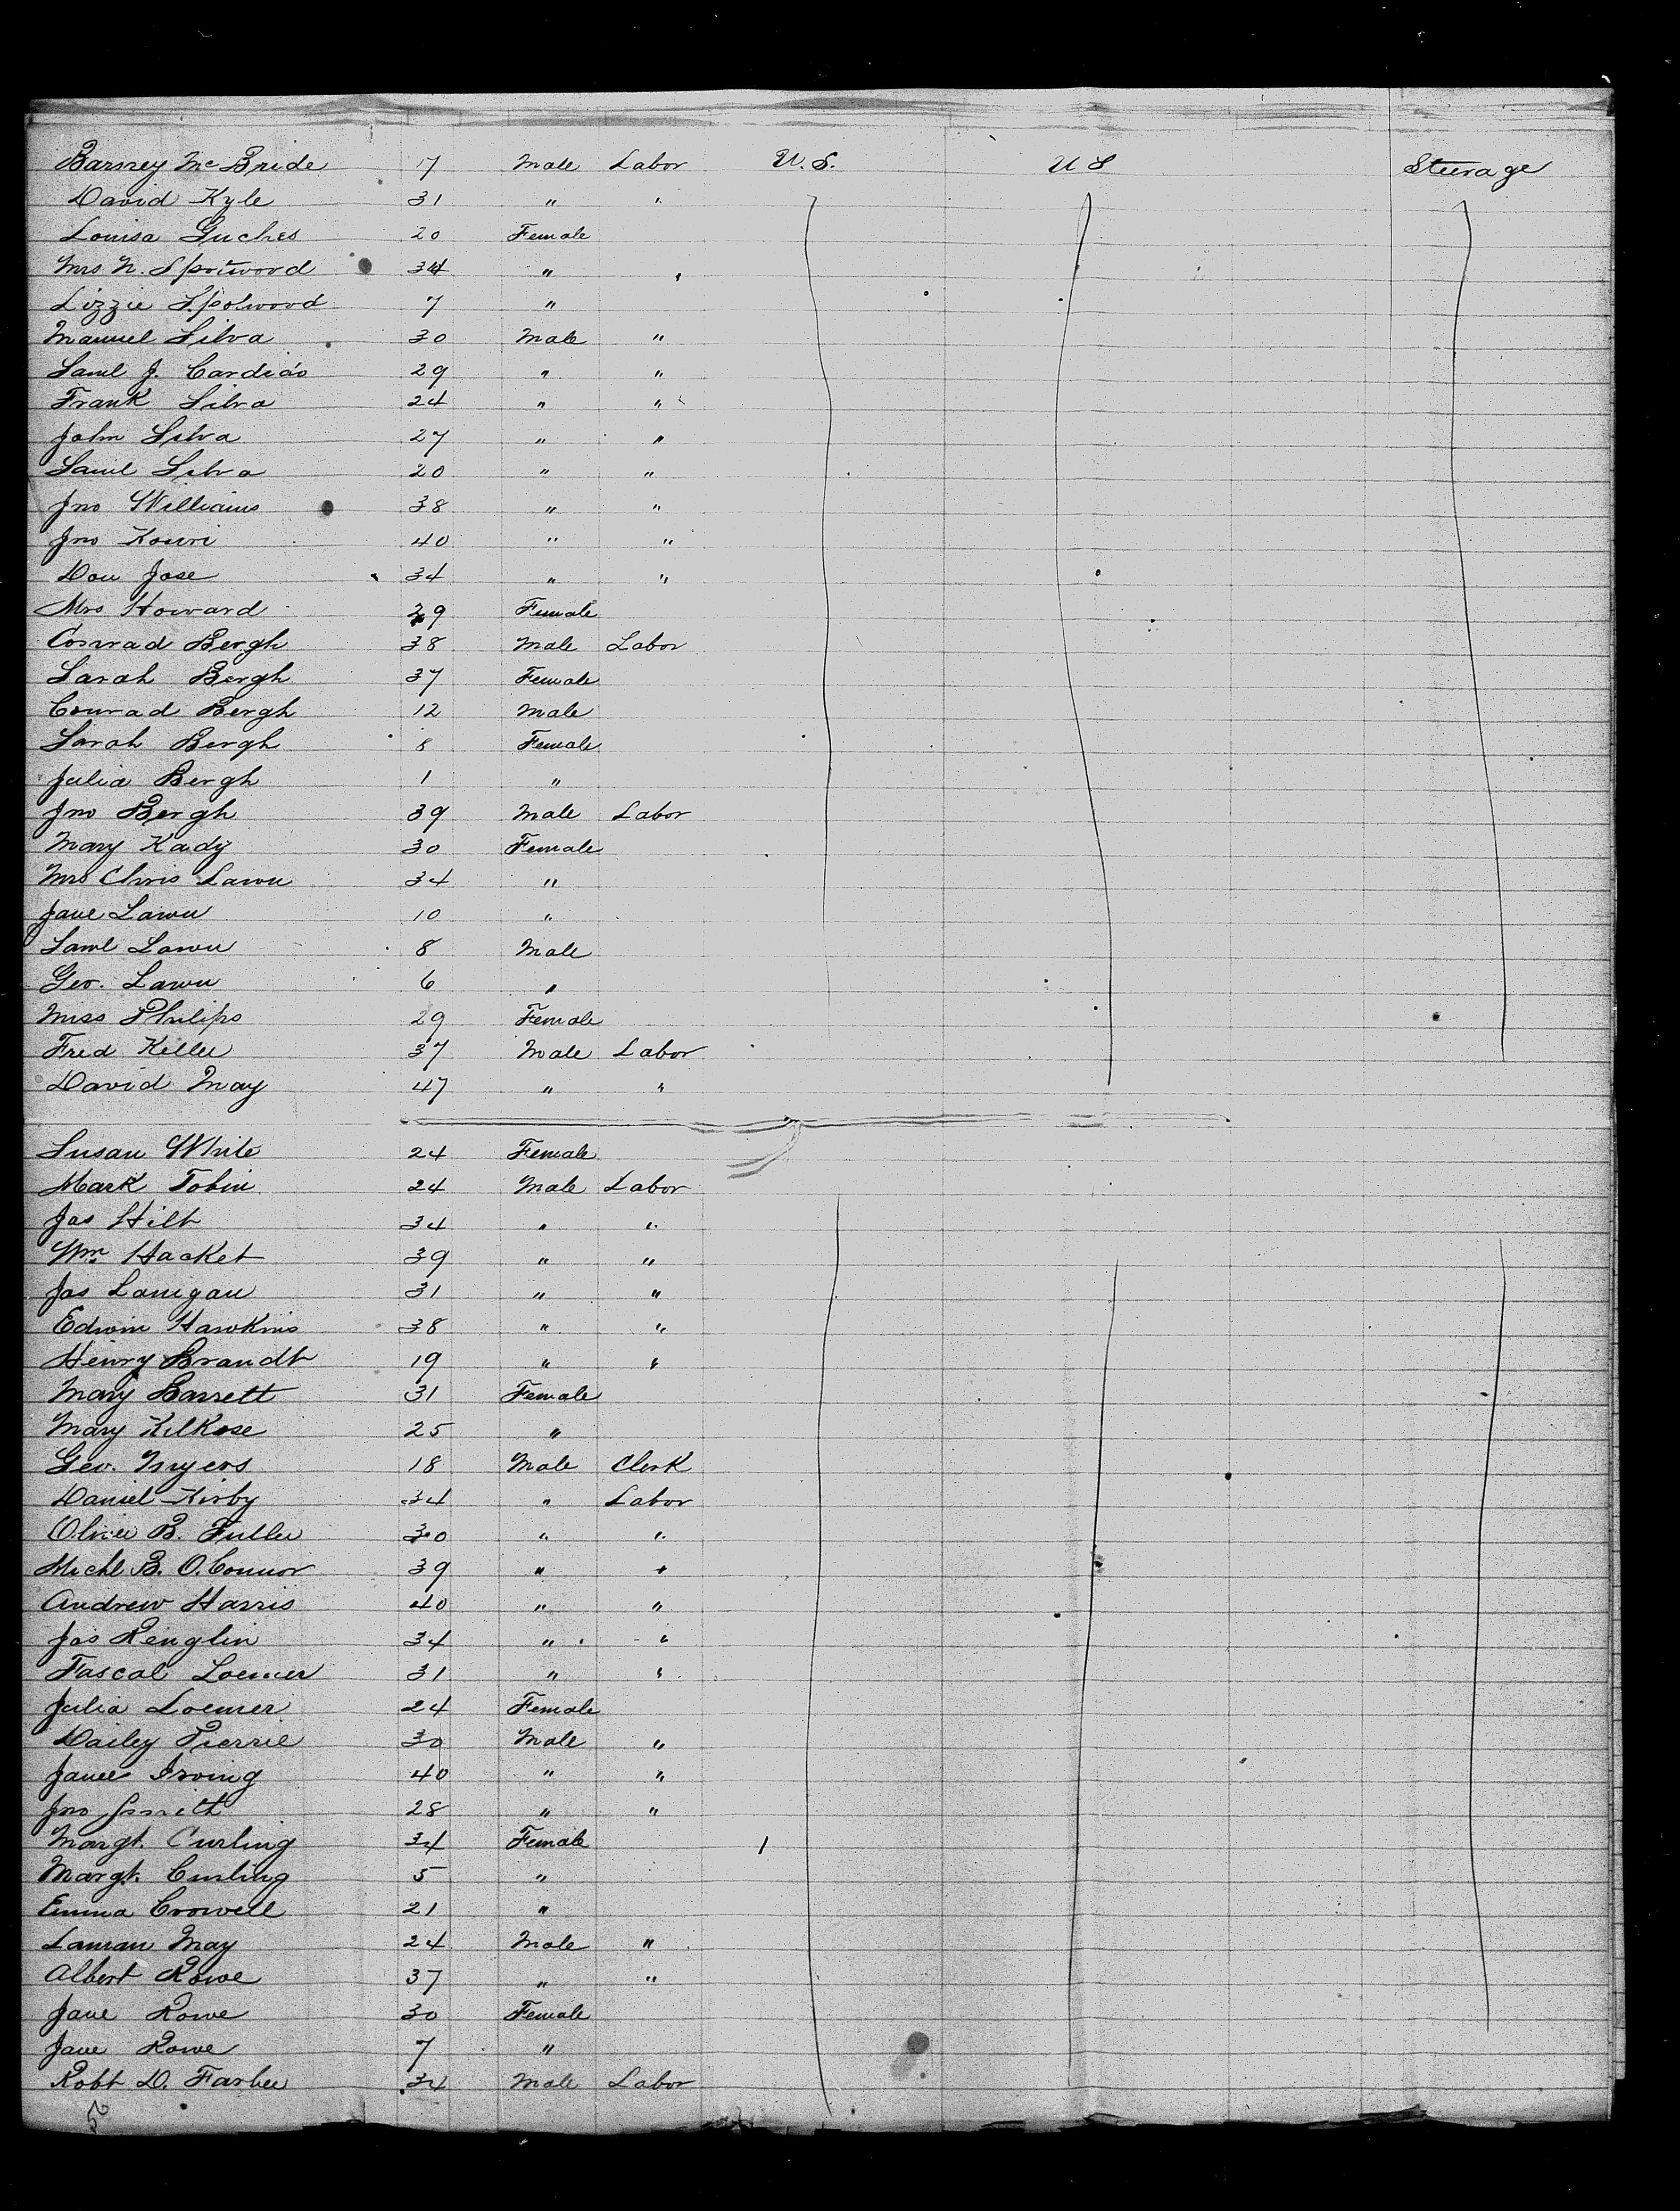 Barney McBride 17 Male Labor U.S. U S Steerage
David Kyle 31 " "
Louisa Guches 20 Female
Mrs N. Spotwood 34 " "
Lizzie Spotwood 7 "
Manuel Silva 30 Male "
Saml J. Cardiao 29 " "
Frank Silva 24 " "
John Silva 27 " "
Saml Silva 20 " "
Jno Williams 38 " "
Jno Kouri 40 " "
Don Jose 34 " "
Mrs Howard 29 Female
Conrad Bergh 38 Male Labor
Sarah Bergh 37 Female
Conrad Bergh 12 Male
Sarah Bergh 8 Female
Julia Bergh 1 "
Jno Bergh 39 Male Labor
Mary Kady 30 Female
Mrs Chris Lawn 34 "
Jane Lawn 10 "
Saml Lawn 8 Male
Geo. Lawn 6 "
Miss Philips 29 Female
Fred Keller 37 Male Labor
David May 47 " "
Susan White 24 Female
Mark Tobin 24 Male Labor
Jas Hilt 34 " "
Wm Hacket 39 " "
Jas Lanigan 31 " "
Edwin Hawkins 38 " "
Henry Brandt 19 " "
Mary Barrett 31 Female
Mary Kilkose 25 "
Geo. Myers 18 Male Clerk
Daniel Kirby 34 " Labor
Oliver B. Fuller 30 " "
Michl B. O.Connor 39 " "
Andrew Harris 40 " "
Jas Renglin 34 " "
Pascal Loemer 31 " "
Julia Loemer 24 Female
Dailey Pierrie 30 Male "
James Irving 40 " "
Jno Smith 28 " "
Margt. Curling 34 Female
Margt. Curling 5 "
Emma Crowell 21 "
Laman May 24 Male "
Albert Rowe 37 " "
Jane Rowe 30 Female
Jane Rowe 7 "
Robt D. Farlee 34 Male Labor